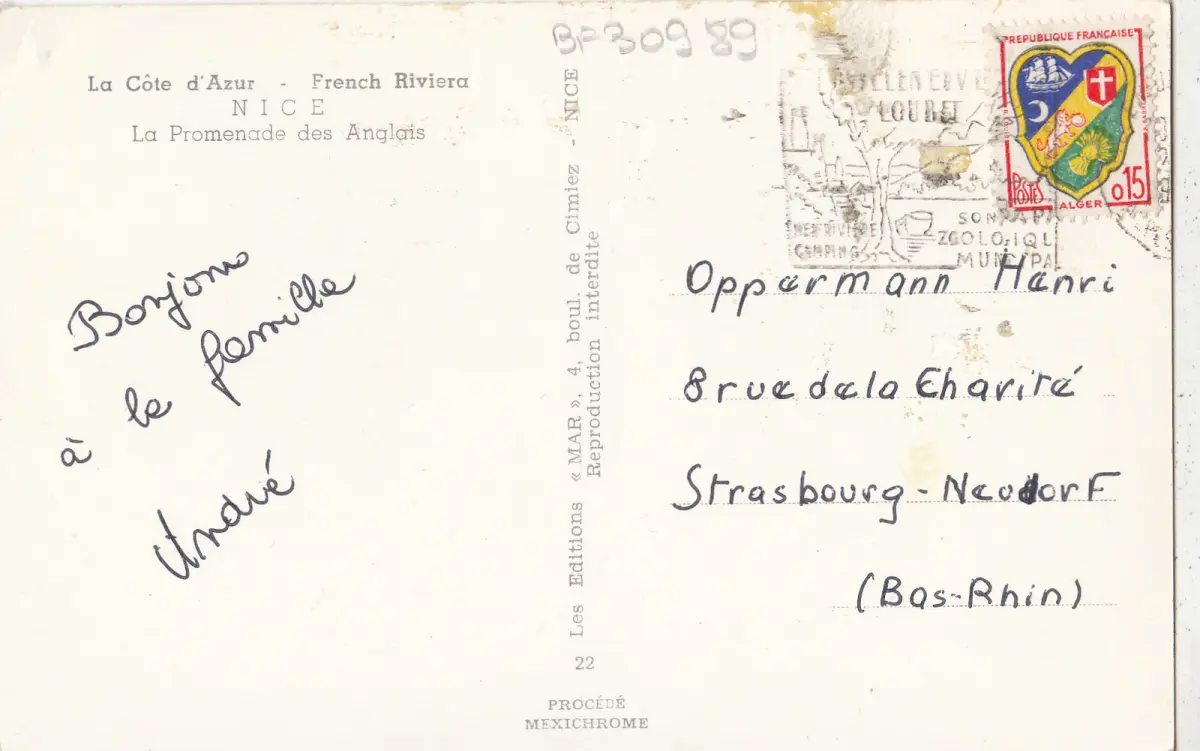 BF30989
La Côte d'Azur - French Riviera
NICE
La Promenade des Anglais
Bonjour
à la famille
André
Les Editions « MAR », 4, boul. de Cimiez - NICE
Reproduction interdite
22
PROCÉDÉ
MEXICHROME
REPUBLIQUE FRANÇAISE
POSTES
0.15
ALGER
LOUBET
MER RIVIERE
CAMPING
SON PA
ZOOLOGIQU
MUNICIPA
Oppermann Henri
8 rue de la Charité
Strasbourg - Neudorf
(Bas-Rhin)